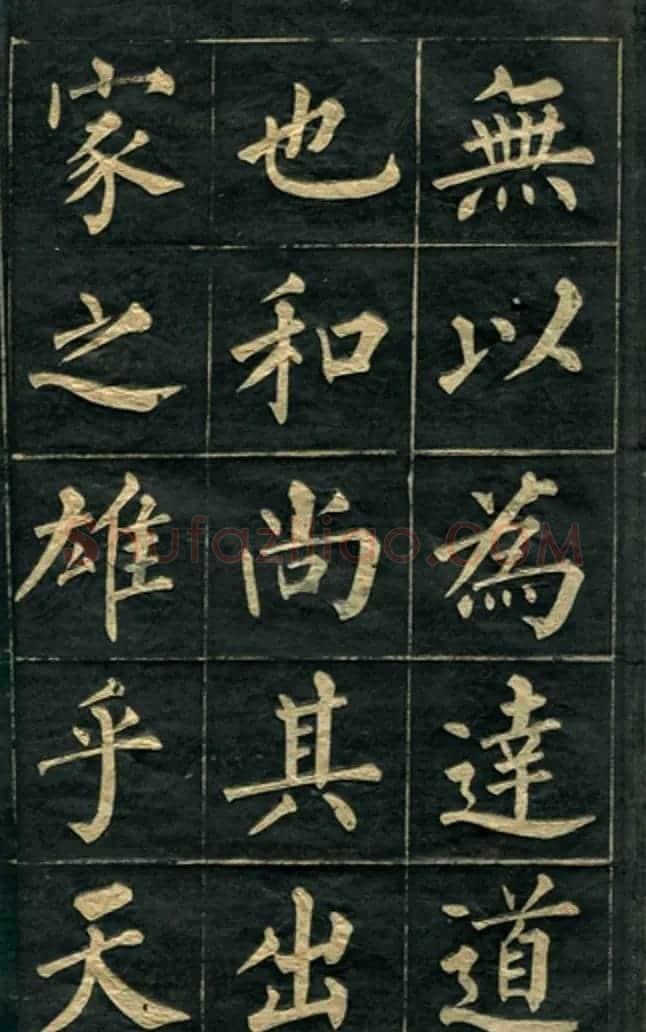 無以為達道
也和尚其出
家之雄乎天
Shufaziliao.COM